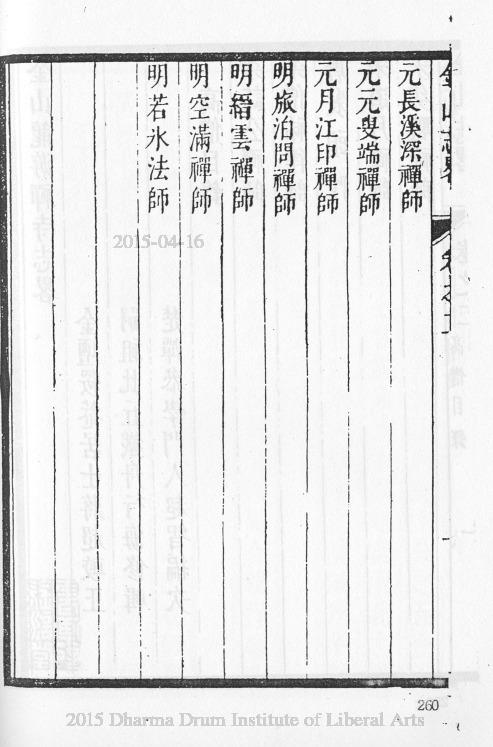 金山志畧 卷之二
元長溪深禪師
元元叟端禪師
元月江印禪師
明旅泊問禪師
明縉雲禪師
明空滿禪師
明若氷法師
2015-04-16
260
2015 Dharma Drum Institute of Liberal Arts